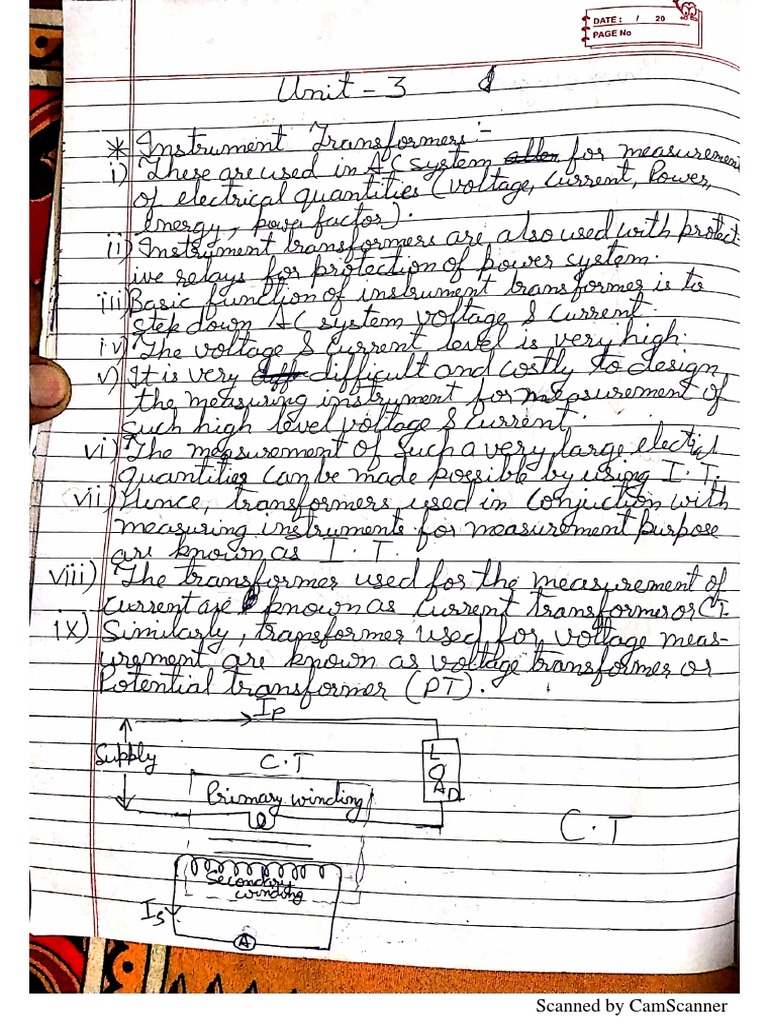 DATE : / 20
PAGE No
Unit - 3
* Instrument Transformers:-
i) These are used in AC system for measurement
of electrical quantities (voltage, current, Power,
energy, powe factor).
ii) Instrument transformers are also used with protect-
ive relays for protection of power system.
iii) Basic function of instrument transformer is to
step down AC system voltage & current.
iv) The voltage & current level is very high.
v) It is very difficult and costly to design
the measuring instrument for measurement of
such high level voltage & current.
vi) The measurement of such a very large electical
quantities can be made possible by using I.T.
vii) Hence, transformers used in conjuction with
measuring instruments for measurement purpose
are known as I.T.
viii) The transformer used for the measurement of
current are known as current transformer or CT.
ix) Similarly, transformer used for voltage meas-
urement are known as voltage transformer or
Potential transformer (PT).
Ip
Supply
C.T
LOAD
Primary winding
C.T
Secondary
winding
Is
A
Scanned by CamScanner